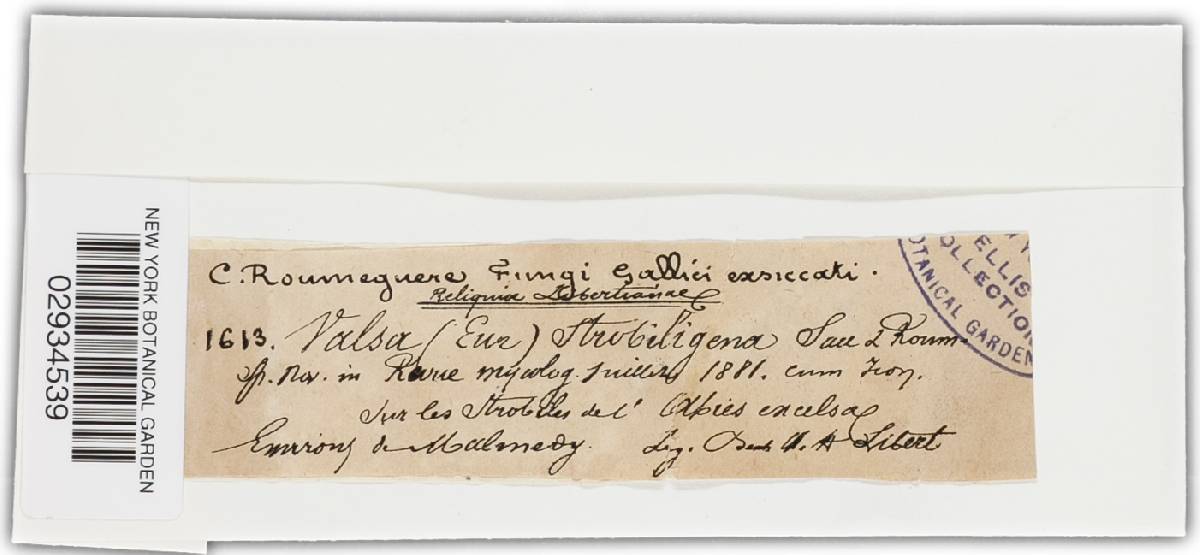 NEW YORK BOTANICAL GARDEN
02934539
C. Roumeguere Fungi Gallici exsiccati.
Reliquiæ Libertianae
1613. Valsa (Eur) Strobiligena Sacc & Roum
sp. nov. in Revue mycolog. juillet 1881. cum
Sur les Strobiles de l' Abies excelsa
Environs de Malmedy. Leg. M. A Libert
ELLIS
COLLECTION
BOTANICAL GARDEN